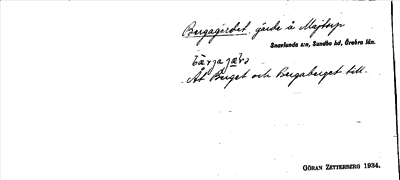 Bergagärdet, gärde å Majtorp
Snavlunda s:n, Sundbo hd, Örebro län.
bärjajärs
Åt Berget och Bergaberget till.
GÖRAN ZETTERBERG 1934.